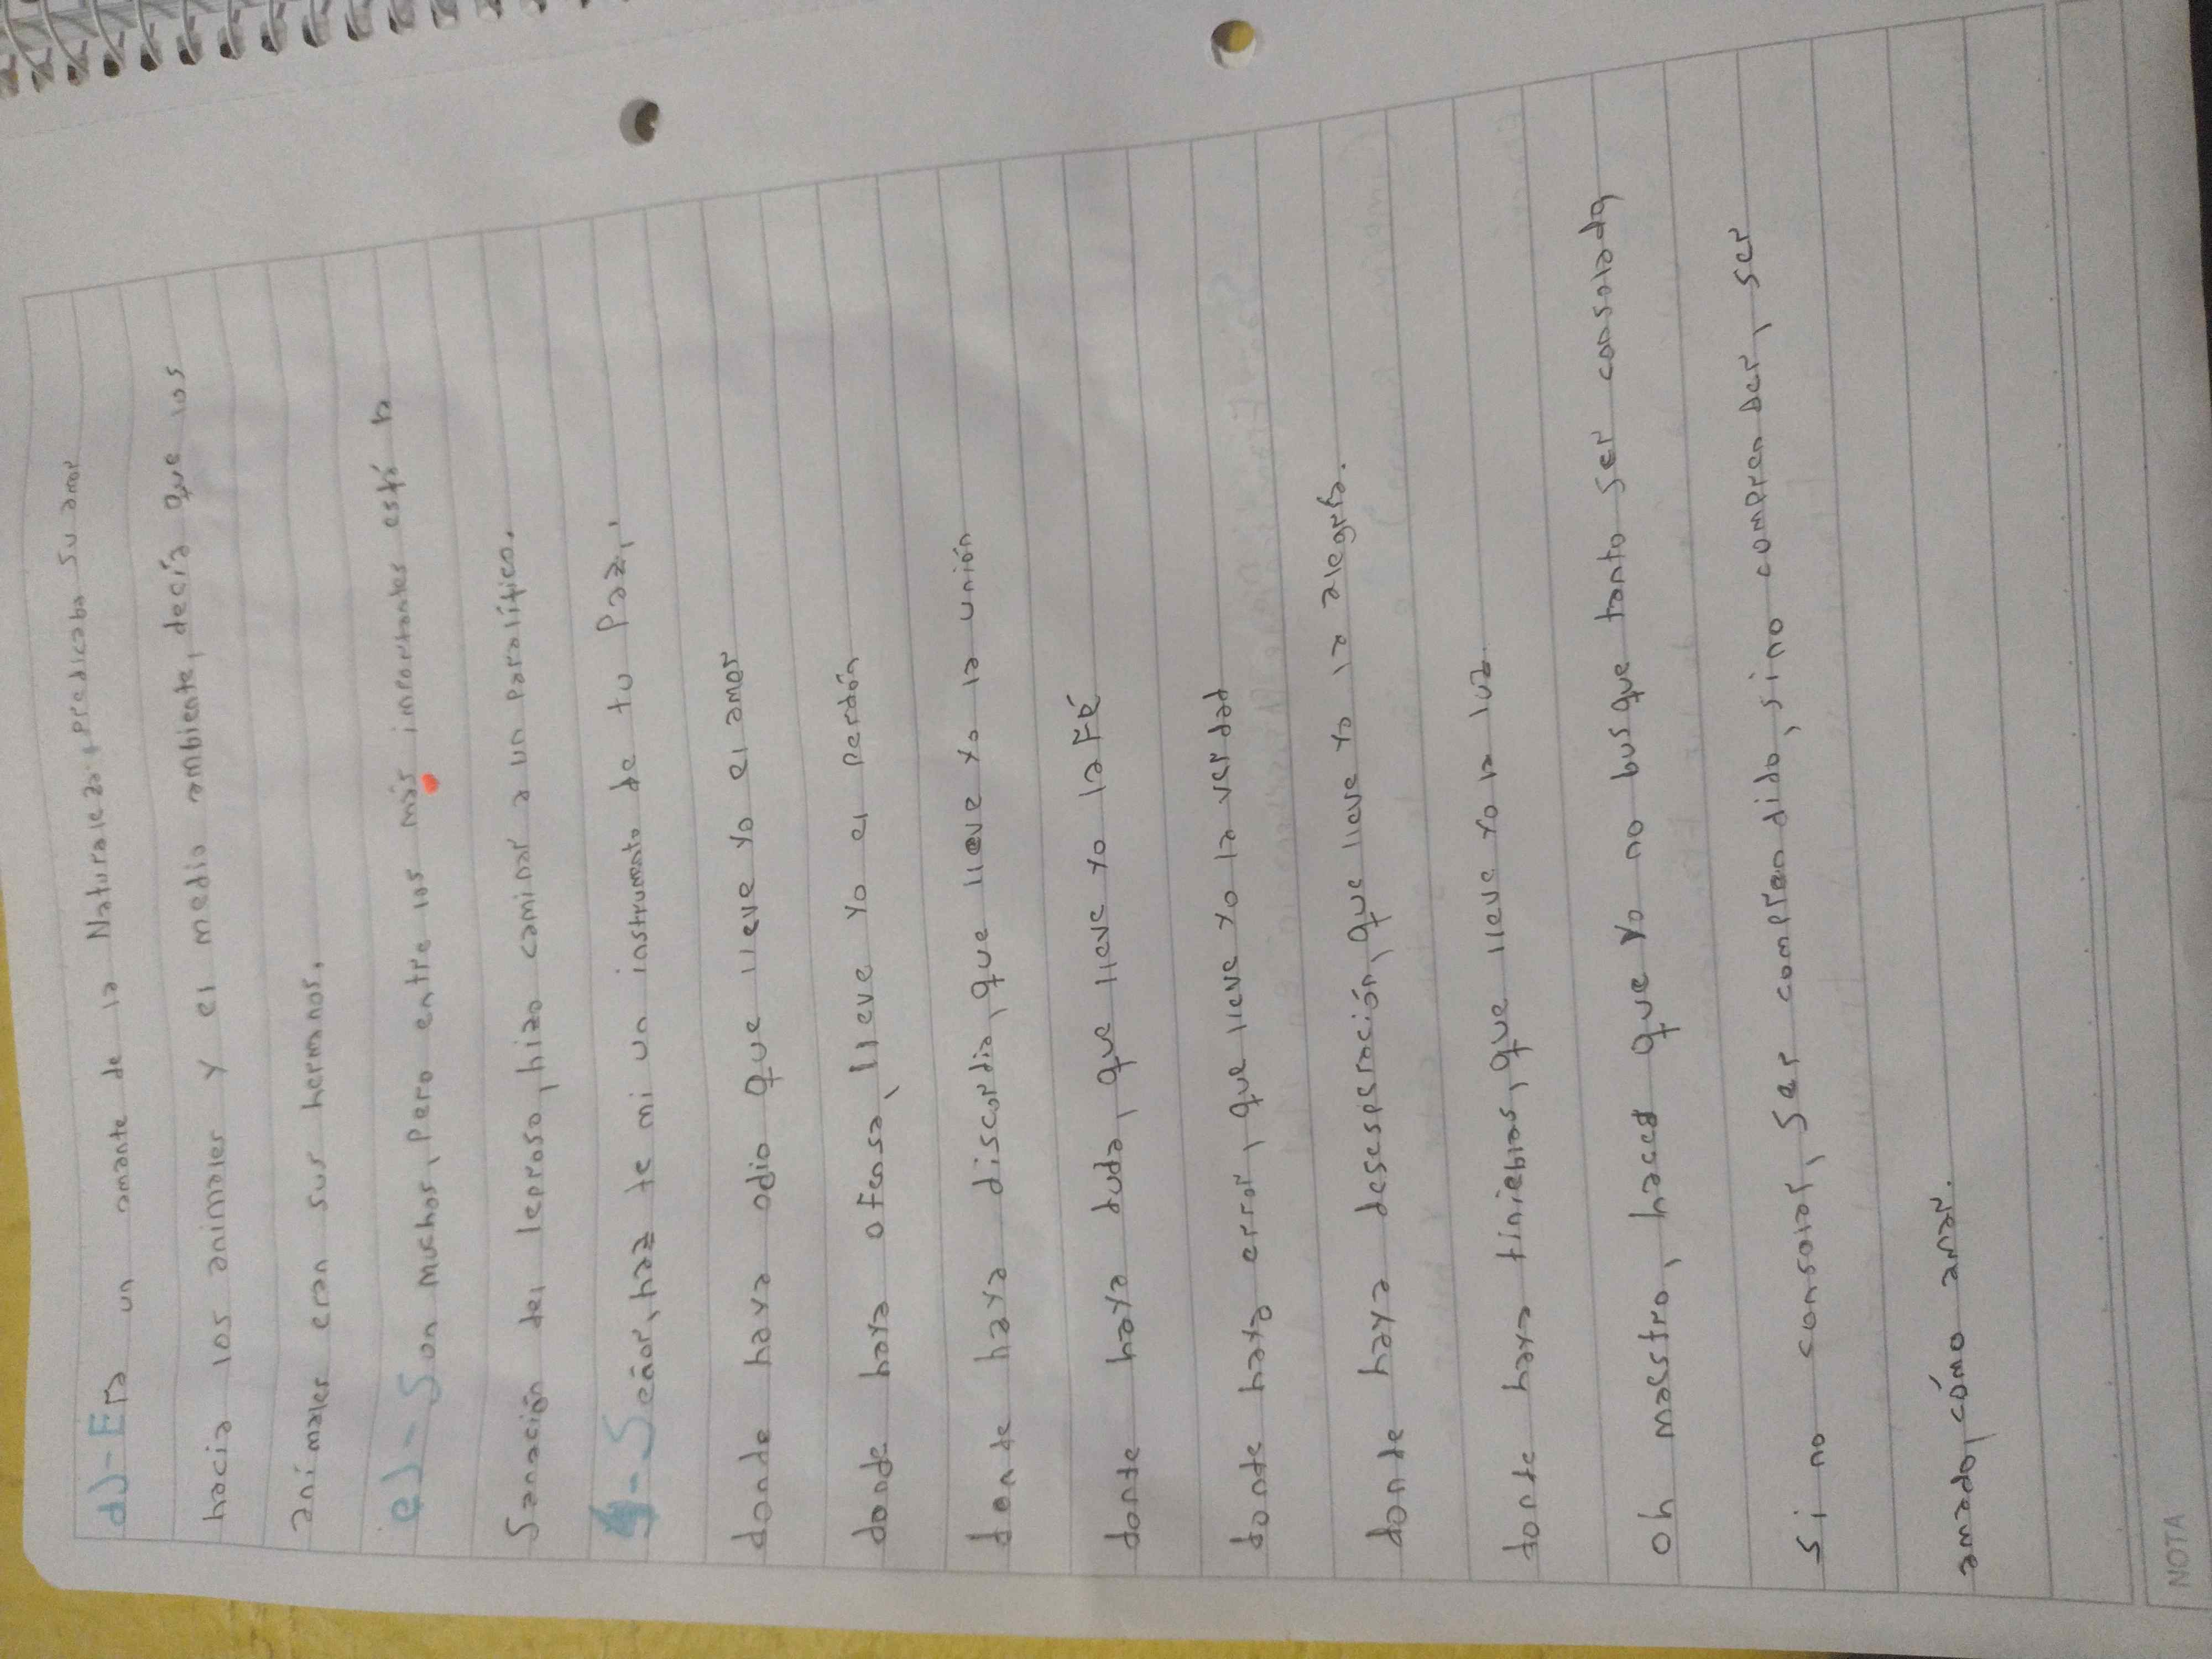 d)- Era un amante de la Naturaleza; predicaba su amor
hacia los animales y el medio ambiente, decía que los
animales eran sus hermanos.
e)- Son muchos, pero entre los más importantes está la
Sanación del leproso, hizo caminar a un paralítico.
4- Señor, haz te mi un instrumento de tu Paz,
donde haya odio que lleve yo el amor
donde haya ofensa, lleve yo el perdón
donde haya discordia, que lleve yo la unión
donde haya duda, que lleve yo la Fé
donde haya error, que lleve yo la verdad
donde haya desesperación, que lleve yo la alegría.
donde haya tinieblas, que lleve yo la luz.
oh maestro, haced que yo no busque tanto ser consolado
si no consolar, ser comprendido, sino comprender, ser
amado, cómo amar.
NOTA